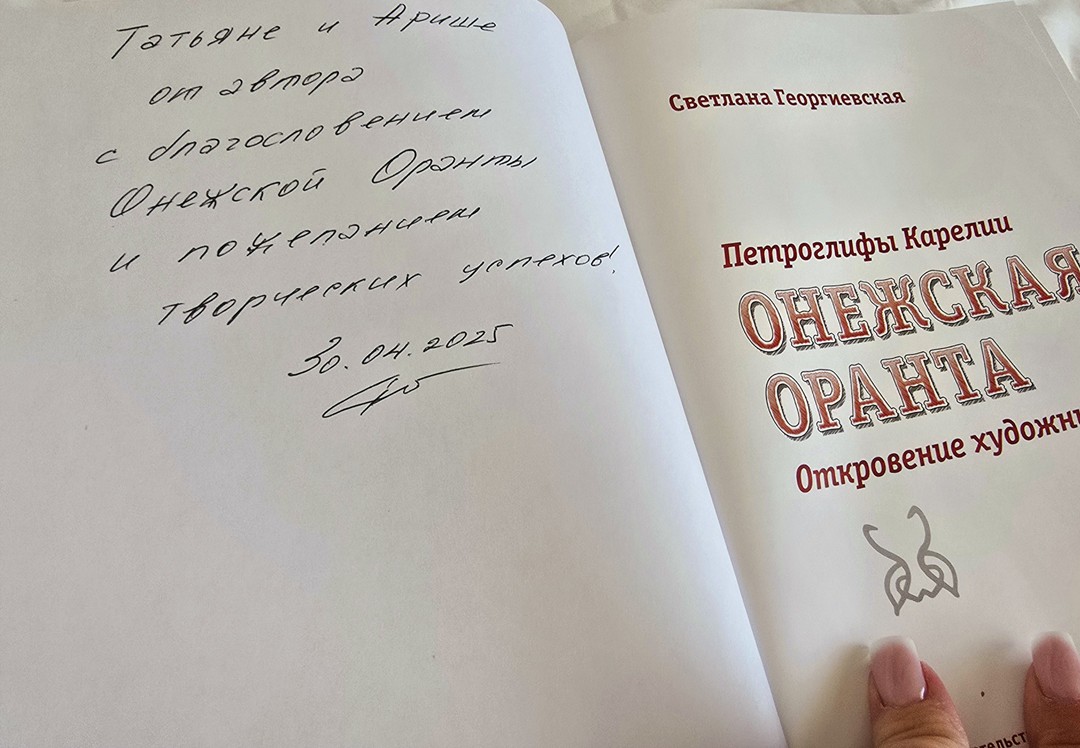 Татьяне и Арише
от автора
с благословением
Онежской Оранты
и пожеланием
творческих успехов!
30.04.2025
Светлана Георгиевская
Петроглифы Карелии
ОНЕЖСКАЯ
ОРАНТА
Откровение